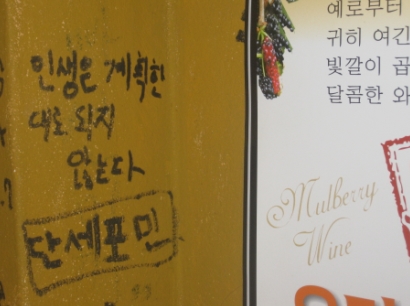 인생은 계획한
대로 되지
않는다
단세포 민
예로부터
귀히 여긴
빛깔이 곱
달콤한 와
Mulberry
Wine